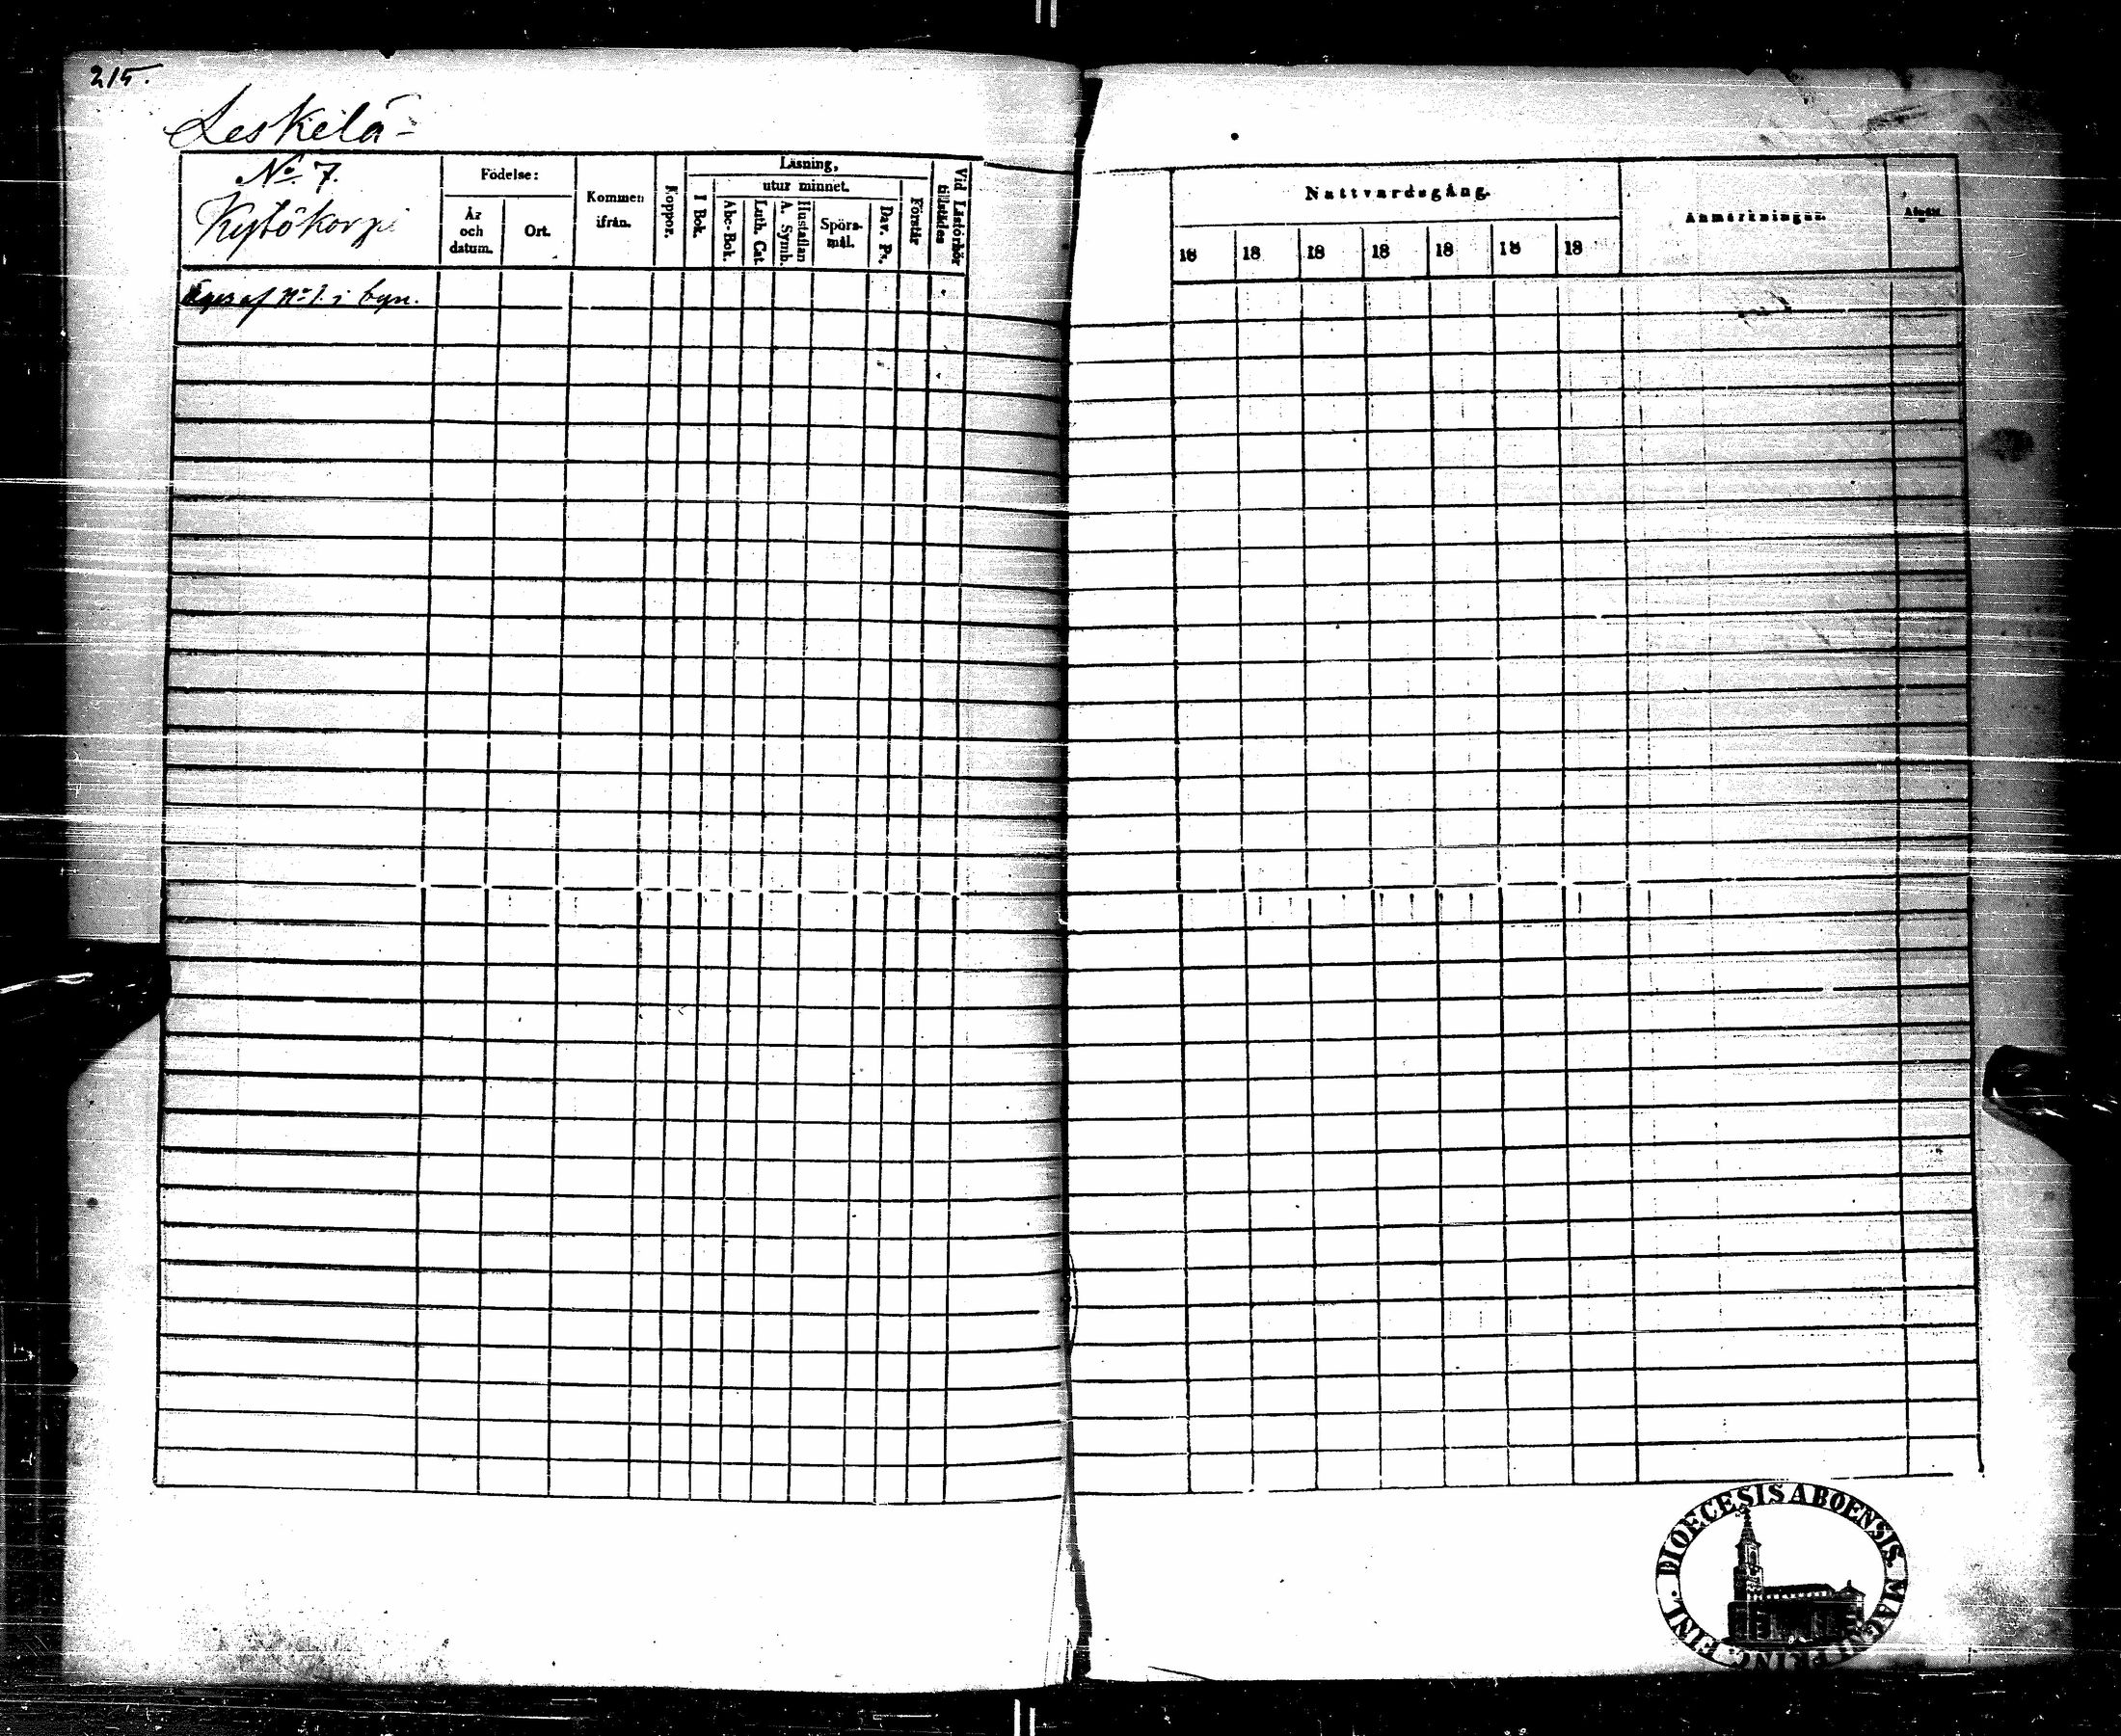 215.
Leskelä
No 7.
Kytökorpi
Äges af No 1. i byn.
Födelse:
År och datum.
Ort.
Kommen ifrån.
Koppor.
Läsning,
I Bok.
utur minnet.
Abc-Bok.
Luth. Cat.
Hustaflan A. Symb.
Spörs-mål.
Dav. Ps.
Förstår
Vid Läsförhör tillstädes
Nattvardsgång.
18 18 18 18 18 18 18
Anmärkningar.
Afgått.
DIOECESIS ABOENSIS. MAGNI PRINC. FINL.